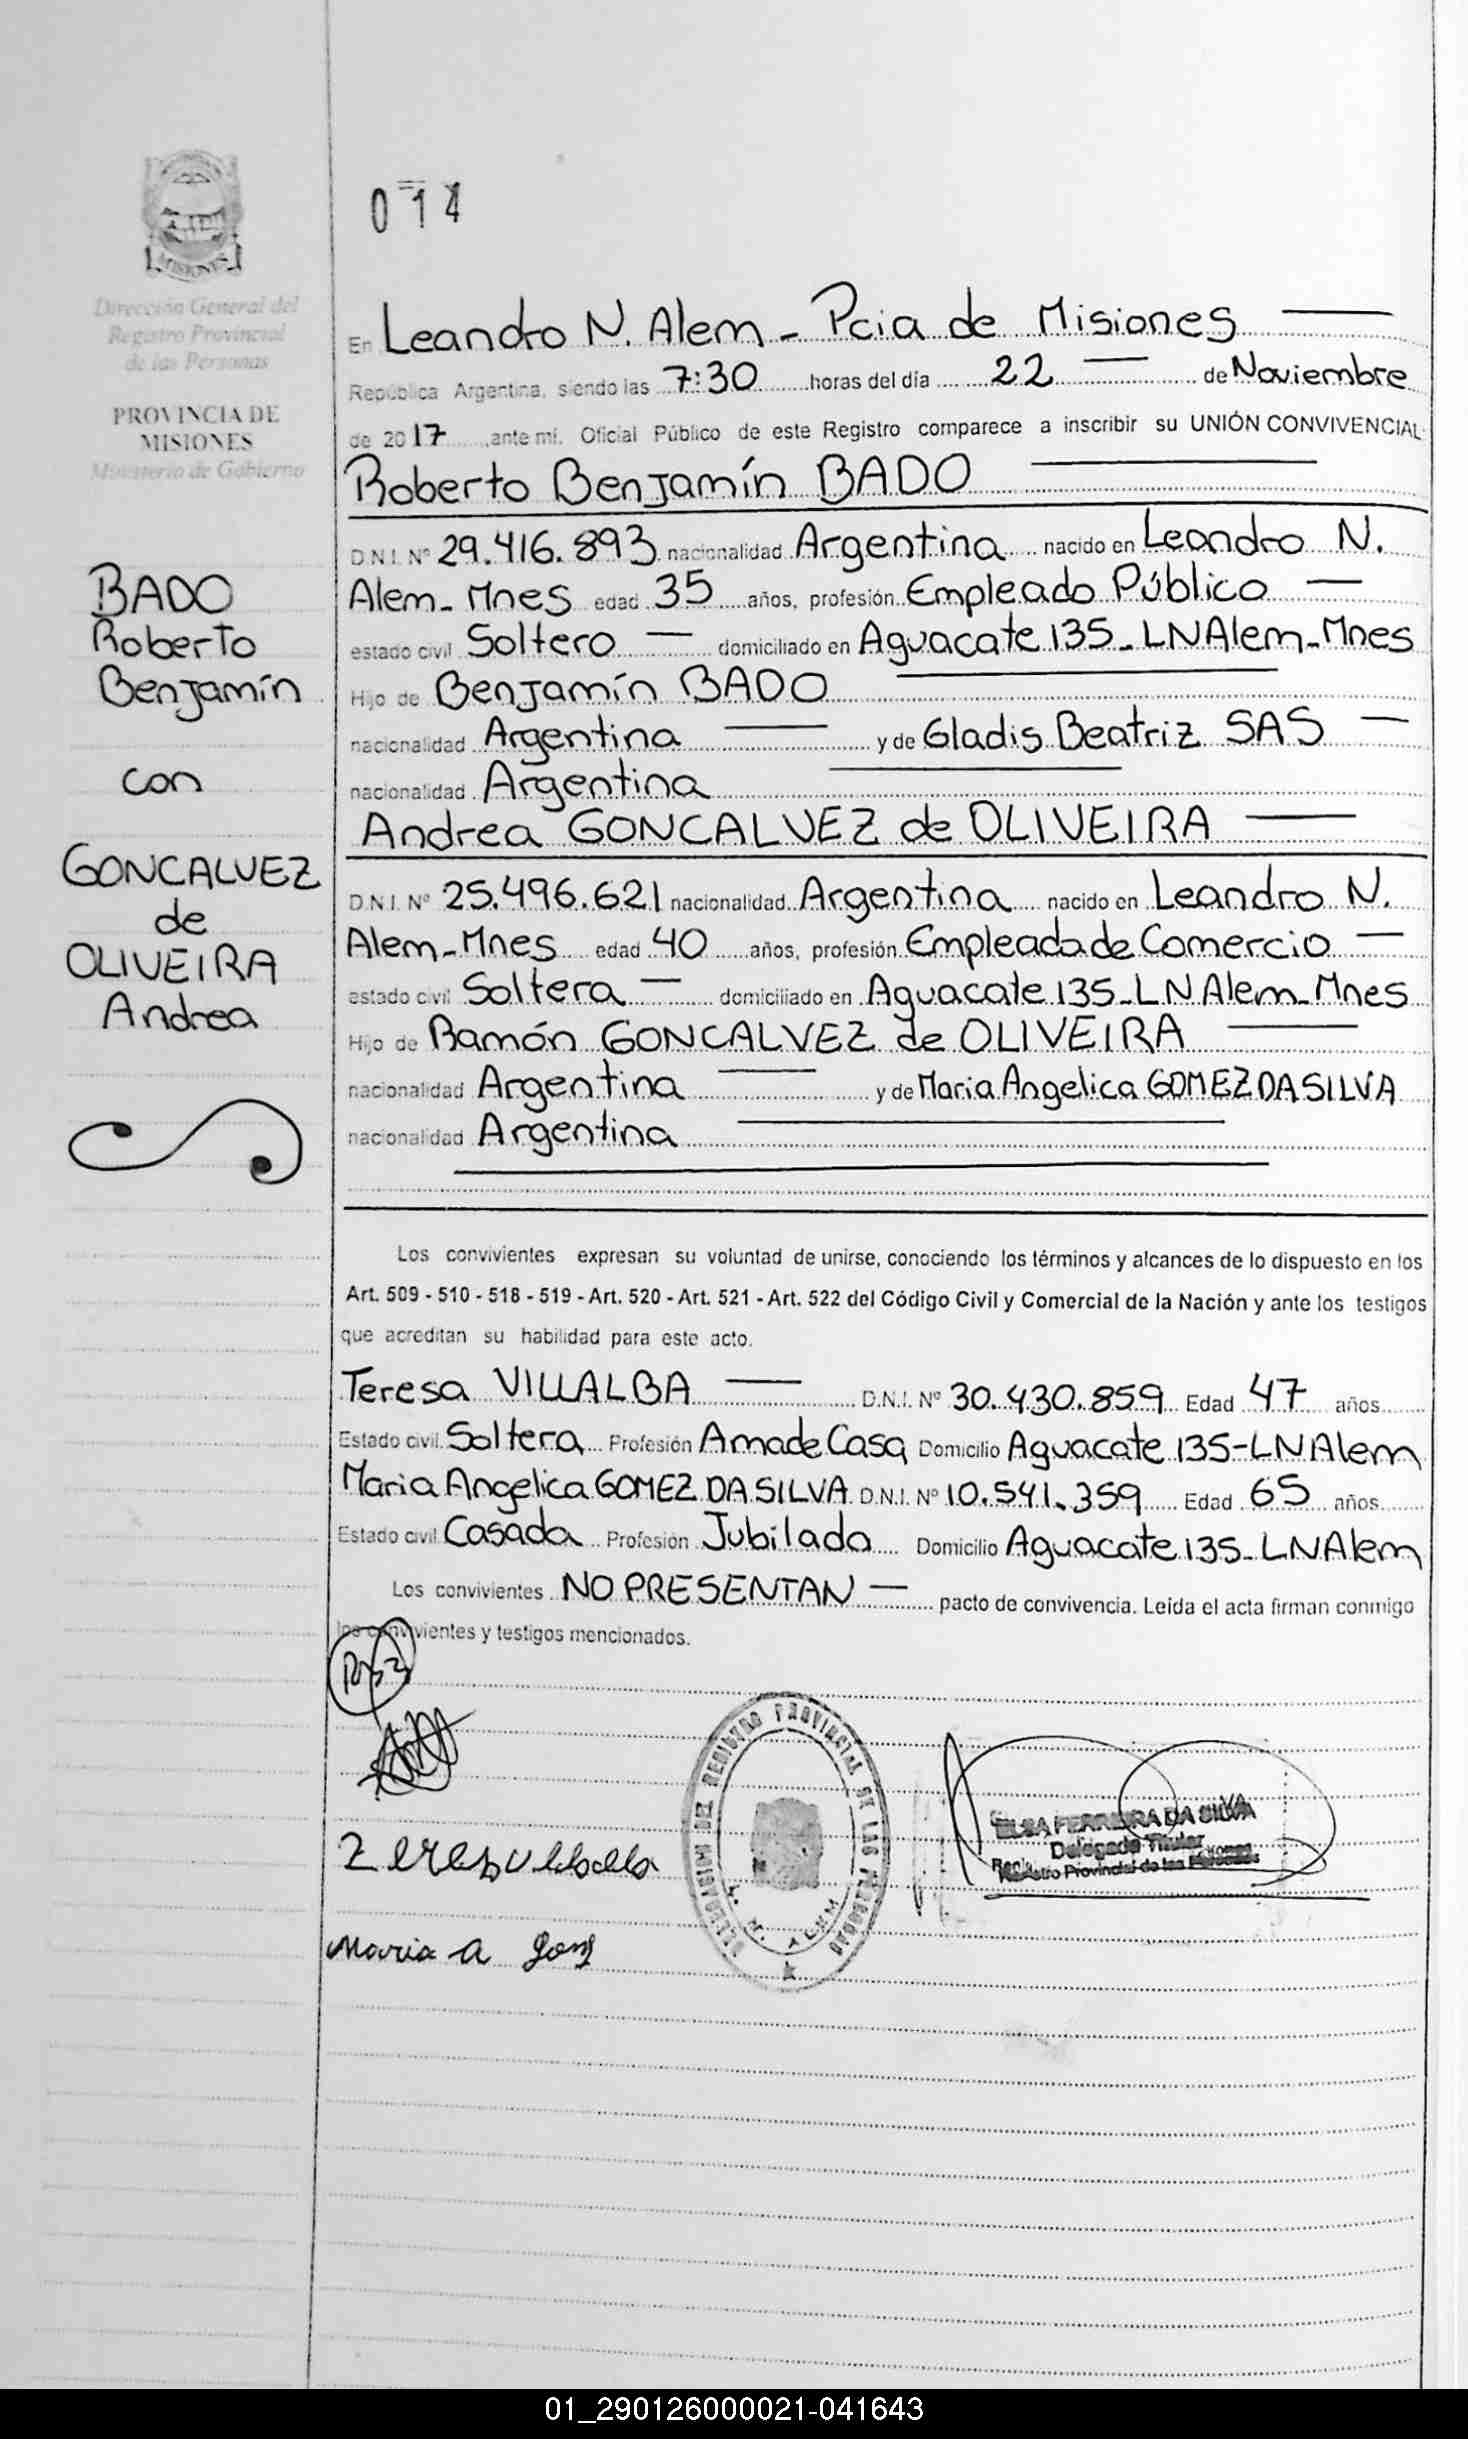 MISIONES
Dirección General del
Registro Provincial
de las Personas
PROVINCIA DE
MISIONES
Ministerio de Gobierno
BADO
Roberto
Benjamín
con
GONCALVEZ
de
OLIVEIRA
Andrea
014
En Leandro N. Alem - Pcia de Misiones
República Argentina, siendo las 7:30 horas del día 22 de Noviembre
de 2017 ,ante mi. Oficial Público de este Registro comparece a inscribir su UNIÓN CONVIVENCIAL
Roberto Benjamín BADO
D.N.I. Nº 29.416.893 nacionalidad Argentina nacido en Leandro N.
Alem - Mnes edad 35 años, profesión Empleado Público
estado civil Soltero domiciliado en Aguacate 135 - LNAlem - Mnes
Hijo de Benjamín BADO
nacionalidad Argentina y de Gladis Beatriz SAS
nacionalidad Argentina
Andrea GONCALVEZ de OLIVEIRA
D.N.I. Nº 25.496.621 nacionalidad Argentina nacido en Leandro N.
Alem - Mnes edad 40 años, profesión Empleada de Comercio
estado civil Soltera domiciliado en Aguacate 135 - LN Alem - Mnes
Hijo de Ramón GONCALVEZ de OLIVEIRA
nacionalidad Argentina y de Maria Angelica GOMEZ DA SILVA
nacionalidad Argentina
Los convivientes expresan su voluntad de unirse, conociendo los términos y alcances de lo dispuesto en los
Art. 509 - 510 - 518 - 519 - Art. 520 - Art. 521 - Art. 522 del Código Civil y Comercial de la Nación y ante los testigos
que acreditan su habilidad para este acto.
Teresa VILLALBA D.N.I. Nº 30.430.859 Edad 47 años
Estado civil Soltera Profesión Ama de Casa Domicilio Aguacate 135 - LNAlem
Maria Angelica GOMEZ DA SILVA D.N.I. Nº 10.541.359 Edad 65 años
Estado civil Casada Profesión Jubilada Domicilio Aguacate 135 - LNAlem
Los convivientes NO PRESENTAN pacto de convivencia. Leída el acta firman conmigo
los convivientes y testigos mencionados.
DELEGACION DEL REGISTRO PROVINCIAL DE LAS PERSONAS
L. N. ALEM
ELSA FERREIRA DA SILVA
Delegada Titular
Registro Provincial de las Personas
Maria A Gomz
01_290126000021-041643